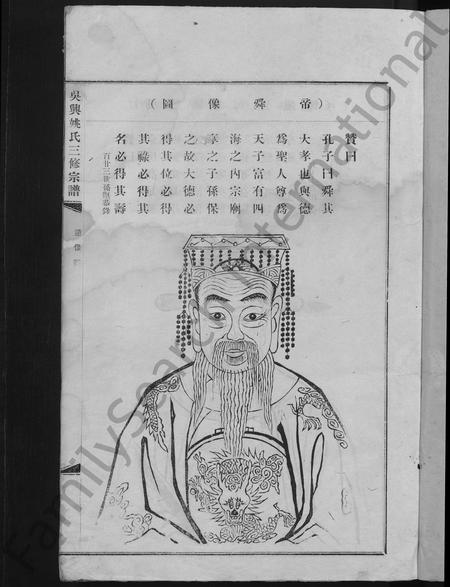 （帝舜像圖）
贊曰
孔子曰舜其
大孝也與德
爲聖人尊爲
天子富有四
海之内宗廟
享之子孫保
之故大德必
得其位必得
其祿必得其
名必得其壽
吳興姚氏三修宗譜
FamilySearch International